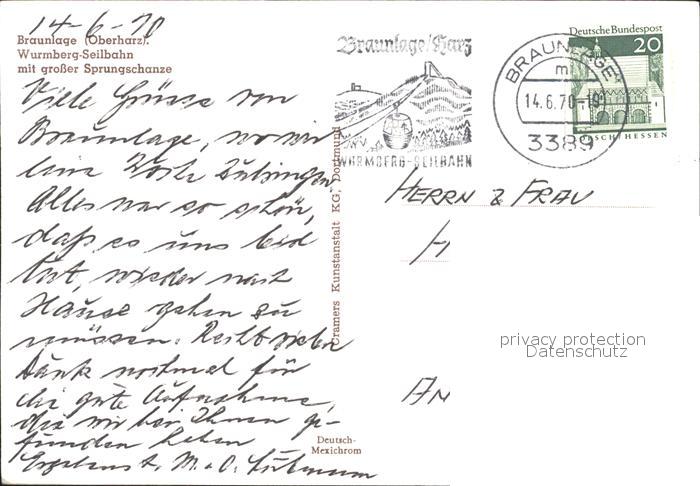 14-6-70
Braunlage (Oberharz).
Wurmberg-Seilbahn
mit großer Sprungschanze
Viele Grüsse von
Braunlage, wo wir
eine Woche zubringen
Alles war so schön,
daß es uns leid
tut, wieder nach
Hause gehen zu
müssen. Recht vielen
Dank nochmal für
die gute Aufnahme,
die wir bei Ihnen ge-
funden haben
M. u. O.
Cramers Kunstanstalt KG, Dortmund
Deutsch-
Mexichrom
Braunlage/Harz
WURMBERG-SEILBAHN
BRAUNLAGE
14.6.70-19
3389
Deutsche Bundespost
20
LORSCH/HESSEN
HERRN & FRAU
H
AN
privacy protection
Datenschutz